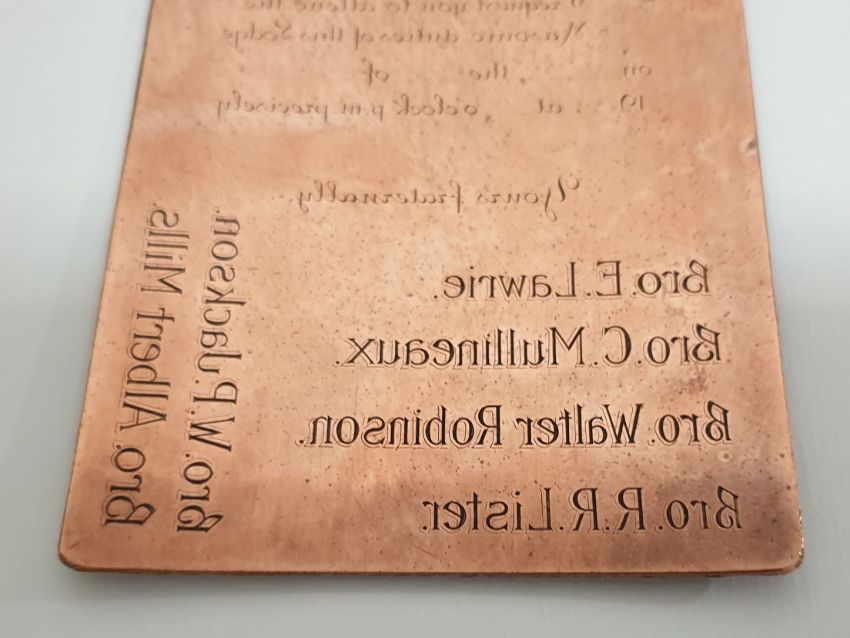 request you to attend the
Masonic duties of this Lodge
on the of
19 at o'clock p.m precisely
Yours fraternally.
Bro. E. Lawrie.
Bro. C. Mullineaux.
Bro. Walter Robinson.
Bro. R. R. Lister.
Bro. Albert Mills.
Bro. W. P. Jackson.